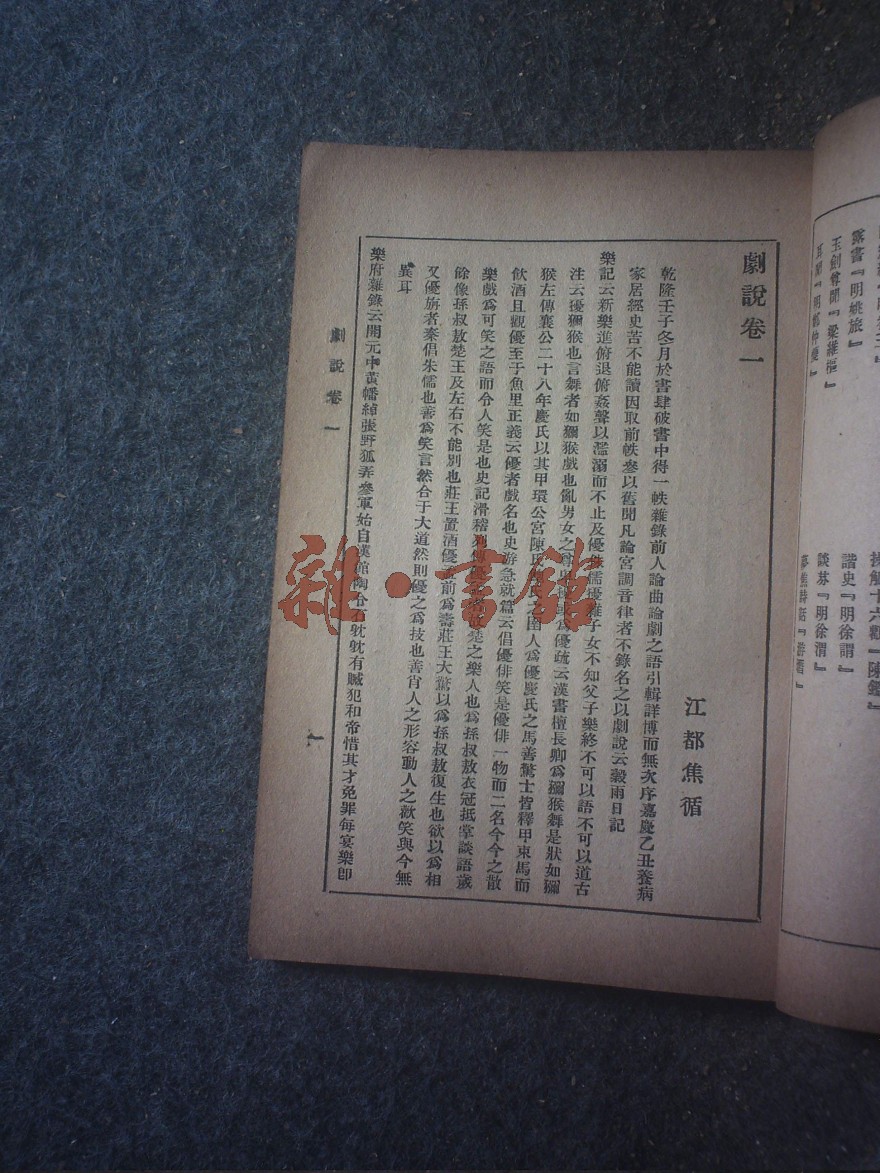 露書『明姚旅』
談林『明徐渭』
諧史『明徐渭』
玉劍尊聞『梁維樞』
劇說卷一
江都焦循
乾隆壬子冬月於書肆破書中得一帙雜錄前人論曲論劇之語引輯詳博而無次序嘉慶乙丑養病
家居經史苦不能讀因取前帙參以舊聞凡論宮調音律者不錄名之以劇說云穀雨日記
樂記云新樂進俯退俯姦聲以濫溺而不止及優侏儒獶雜子女不知父子樂終不可以語不可以道古
注云獶獼猴也言舞者如獼猴戲也亂男女之尊卑獶或爲優疏云漢書檀長卿爲獼猴舞是狀如獼
猴左傳襄公二十八年慶氏以其甲環公宮陳氏鮑氏之圉人爲優慶氏之馬善驚士皆釋甲束馬而
飲酒且觀優至于魚里正義云優者戲名也史游急就篇云倡優俳笑是優俳一物而二名今今之散
樂戲爲可笑之語而令人笑是也史記滑稽列傳優孟者故楚之樂人也爲孫叔敖衣冠抵掌談語歲
餘像孫叔敖楚王及左右不能別也莊王置酒優孟前爲壽莊王大驚以爲孫叔敖復生也欲以爲相
又優旃者秦倡朱儒也善爲笑言然合于大道然則優之爲技也善肖人之形容動人之歡笑與今無
異耳
樂府雜錄云開元中黃幡綽張野狐弄參軍始自漢館陶令石躭躭有贓犯和帝惜其才免罪每宴樂即
劇說卷一
一
雜·書館